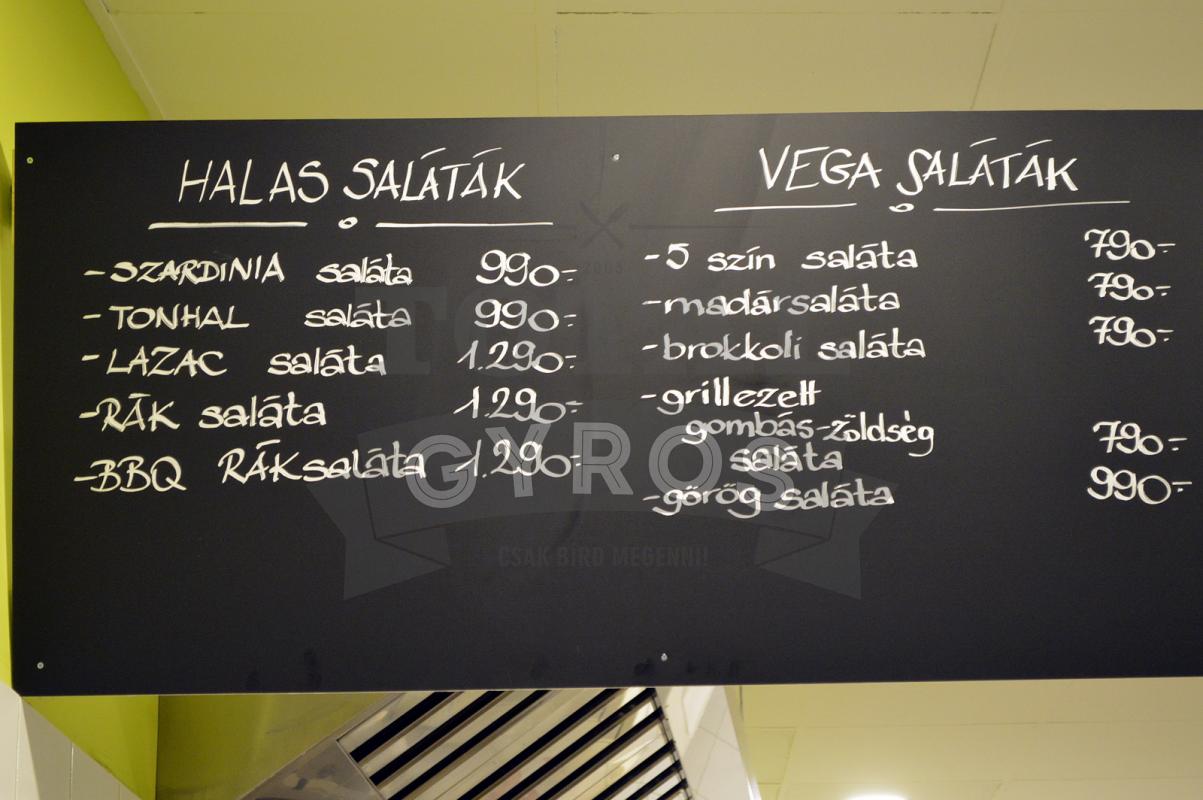 HALAS SALÁTÁK
-SZARDINIA saláta 990-
-TONHAL saláta 990-
-LAZAC saláta 1.290-
-RÁK saláta 1.290-
-BBQ RÁKsaláta 1.290-
VEGA SALÁTÁK
-5 szín saláta 790-
-madársaláta 790-
-brokkoli saláta 790-
-grillezett
gombás-zöldség
saláta 790-
-görög saláta 990-
GYROS
CSAK BÍRD MEGENNI!